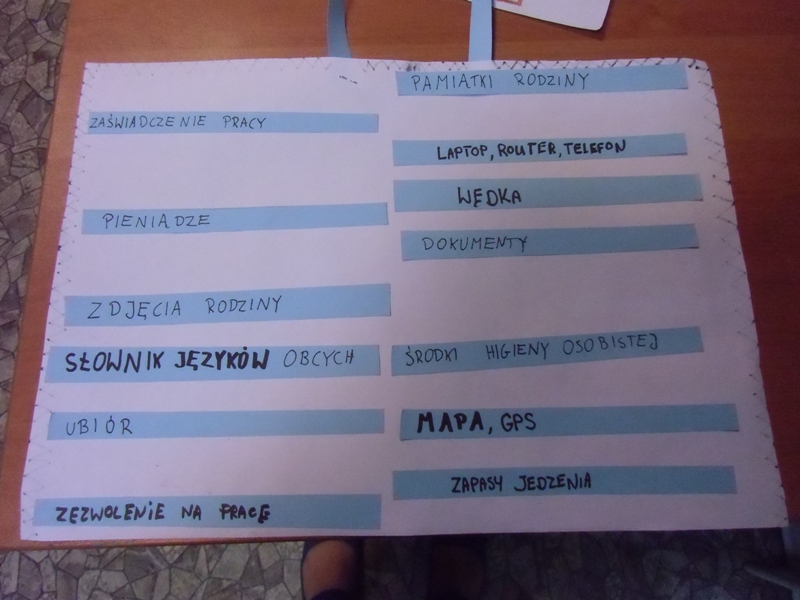 ZAŚWIADCZENIE PRACY
PIENIĄDZE
ZDJĘCIA RODZINY
SŁOWNIK JĘZYKÓW OBCYCH
UBIÓR
ZEZWOLENIE NA PRACĘ
PAMIATKI RODZINY
LAPTOP, ROUTER, TELEFON
WĘDKA
DOKUMENTY
ŚRODKI HIGIENY OSOBISTEJ
MAPA, GPS
ZAPASY JEDZENIA